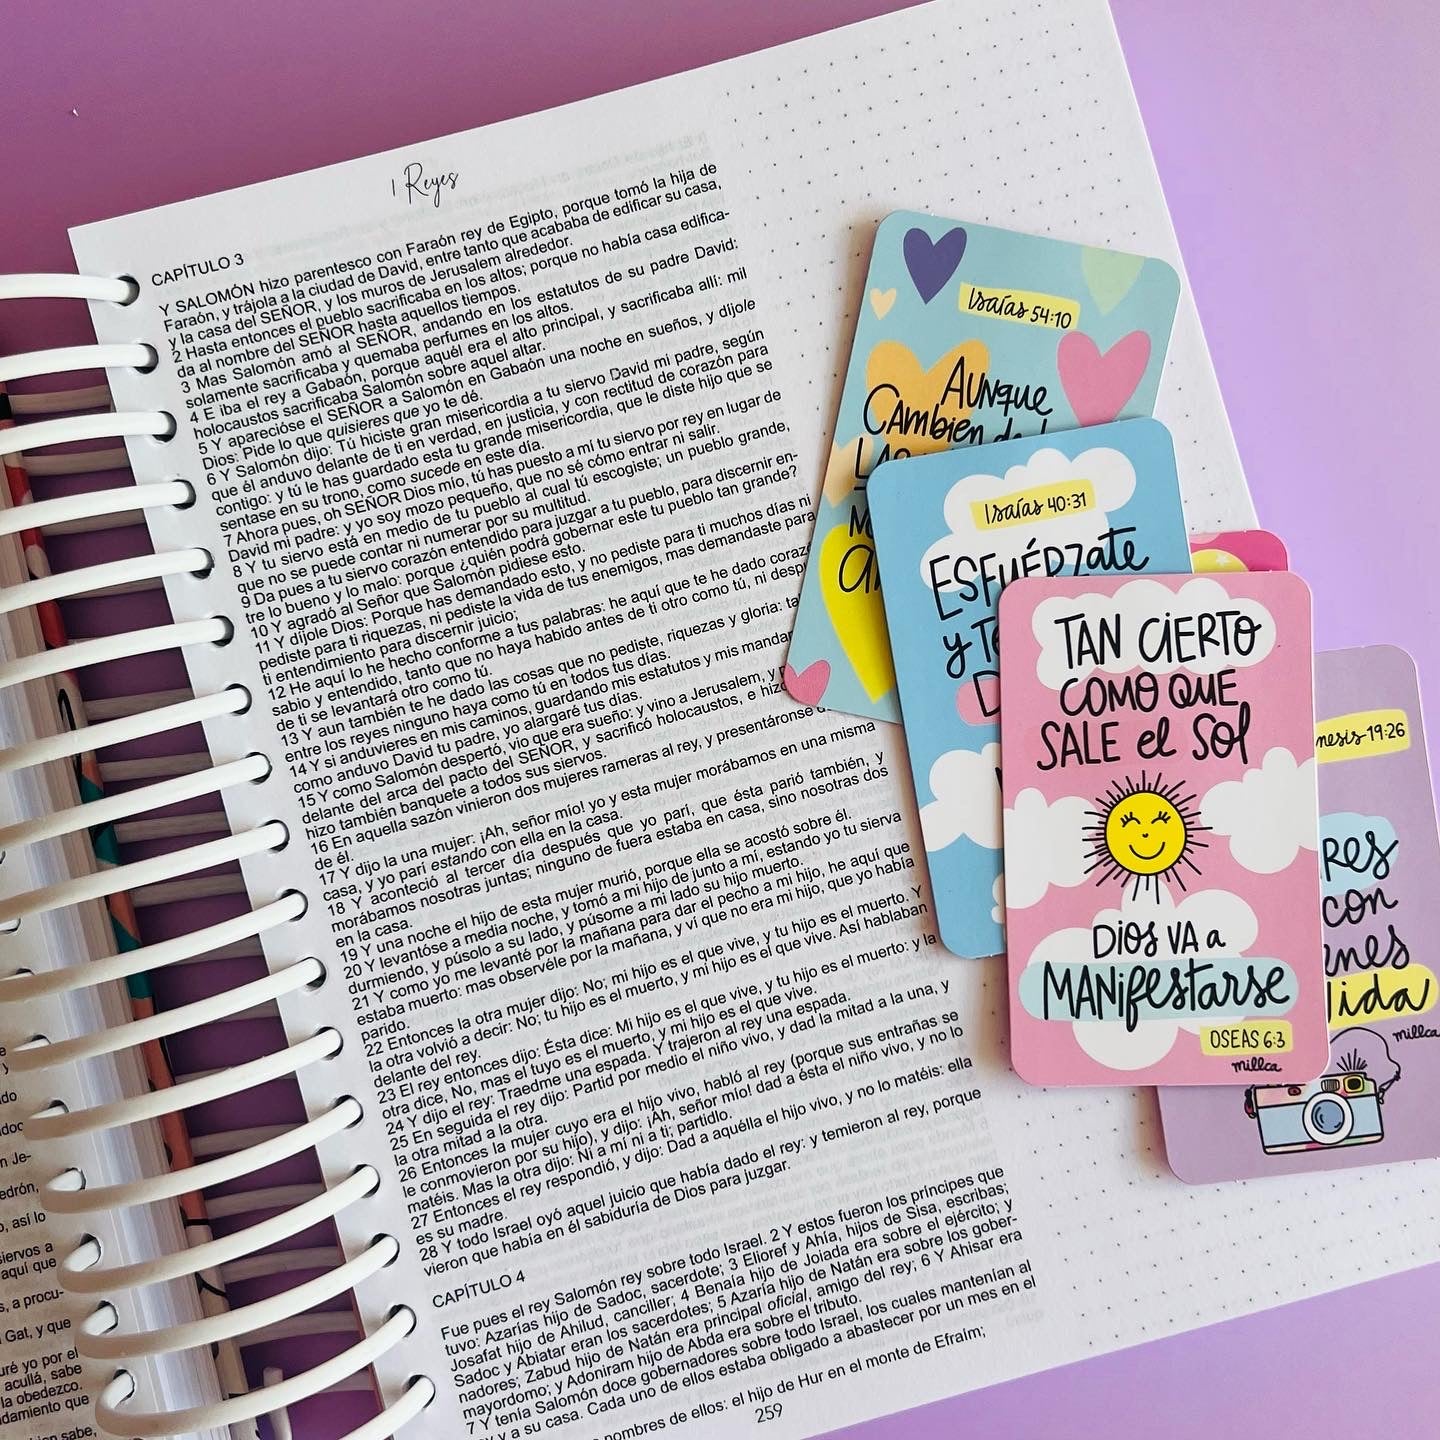 1 Reyes
CAPÍTULO 3
Y SALOMÓN hizo parentesco con Faraón rey de Egipto, porque tomó la hija de
Faraón, y trájola a la ciudad de David, entre tanto que acababa de edificar su casa,
y la casa del SEÑOR, y los muros de Jerusalem alrededor.
2 Hasta entonces el pueblo sacrificaba en los altos; porque no había casa edifica-
da al nombre del SEÑOR hasta aquellos tiempos.
3 Mas Salomón amó al SEÑOR, andando en los estatutos de su padre David:
solamente sacrificaba y quemaba perfumes en los altos.
4 E iba el rey a Gabaón, porque aquél era el alto principal, y sacrificaba allí: mil
holocaustos sacrificaba Salomón sobre aquel altar.
5 Y aparecióse el SEÑOR a Salomón en Gabaón una noche en sueños, y díjole
Dios: Pide lo que quisieres que yo te dé.
6 Y Salomón dijo: Tú hiciste gran misericordia a tu siervo David mi padre, según
que él anduvo delante de ti en verdad, en justicia, y con rectitud de corazón para
contigo: y tú le has guardado esta tu grande misericordia, que le diste hijo que se
sentase en su trono, como sucede en este día.
7 Ahora pues, oh SEÑOR Dios mío, tú has puesto a mí tu siervo por rey en lugar de
David mi padre: y yo soy mozo pequeño, que no sé cómo entrar ni salir.
8 Y tu siervo está en medio de tu pueblo al cual tú escogiste; un pueblo grande,
que no se puede contar ni numerar por su multitud.
9 Da pues a tu siervo corazón entendido para juzgar a tu pueblo, para discernir en-
tre lo bueno y lo malo: porque ¿quién podrá gobernar este tu pueblo tan grande?
10 Y agradó al Señor que Salomón pidiese esto.
11 Y díjole Dios: Porque has demandado esto, y no pediste para ti muchos días ni
pediste para ti riquezas, ni pediste la vida de tus enemigos, mas demandaste para
ti entendimiento para discernir juicio;
12 He aquí lo he hecho conforme a tus palabras: he aquí que te he dado corazó
sabio y entendido, tanto que no haya habido antes de ti otro como tú, ni despu
de ti se levantará otro como tú.
13 Y aun también te he dado las cosas que no pediste, riquezas y gloria: ta
entre los reyes ninguno haya como tú en todos tus días.
14 Y si anduvieres en mis caminos, guardando mis estatutos y mis mandam
como anduvo David tu padre, yo alargaré tus días.
15 Y como Salomón despertó, vio que era sueño: y vino a Jerusalem, y
delante del arca del pacto del SEÑOR, y sacrificó holocaustos, e hizo
hizo también banquete a todos sus siervos.
16 En aquella sazón vinieron dos mujeres rameras al rey, y presentáronse
de él.
17 Y dijo la una mujer: ¡Ah, señor mío! yo y esta mujer morábamos en una misma
casa, y yo parí estando con ella en la casa.
18 Y aconteció al tercer día después que yo parí, que ésta parió también, y
morábamos nosotras juntas; ninguno de fuera estaba en casa, sino nosotras dos
en la casa.
19 Y una noche el hijo de esta mujer murió, porque ella se acostó sobre él.
20 Y levantóse a media noche, y tomó a mi hijo de junto a mí, estando yo tu sierva
durmiendo, y púsolo a su lado, y púsome a mi lado su hijo muerto.
21 Y como yo me levanté por la mañana para dar el pecho a mi hijo, he aquí que
estaba muerto: mas observéle por la mañana, y ví que no era mi hijo, que yo había
parido.
22 Entonces la otra mujer dijo: No; mi hijo es el que vive, y tu hijo es el muerto. Y
la otra volvió a decir: No; tu hijo es el muerto, y mi hijo es el que vive. Así hablaban
delante del rey.
23 El rey entonces dijo: Ésta dice: Mi hijo es el que vive, y tu hijo es el muerto: y la
otra dice, No, mas el tuyo es el muerto, y mi hijo es el que vive.
24 Y dijo el rey: Traedme una espada. Y trajeron al rey una espada.
25 En seguida el rey dijo: Partid por medio el niño vivo, y dad la mitad a la una, y
la otra mitad a la otra.
26 Entonces la mujer cuyo era el hijo vivo, habló al rey (porque sus entrañas se
le conmovieron por su hijo), y dijo: ¡Ah, señor mío! dad a ésta el niño vivo, y no lo
matéis. Mas la otra dijo: Ni a mí ni a ti; partidlo.
27 Entonces el rey respondió, y dijo: Dad a aquélla el hijo vivo, y no lo matéis: ella
es su madre.
28 Y todo Israel oyó aquel juicio que había dado el rey: y temieron al rey, porque
vieron que había en él sabiduría de Dios para juzgar.
CAPÍTULO 4
Fue pues el rey Salomón rey sobre todo Israel. 2 Y estos fueron los príncipes que
tuvo: Azarías hijo de Sadoc, sacerdote; 3 Elioref y Ahía, hijos de Sisa, escribas;
Josafat hijo de Ahilud, canciller; 4 Benaía hijo de Joiada era sobre el ejército; y
Sadoc y Abiatar eran los sacerdotes; 5 Azaría hijo de Natán era sobre los gober-
nadores; Zabud hijo de Natán era principal oficial, amigo del rey; 6 Y Ahisar era
mayordomo; y Adoniram hijo de Abda era sobre el tributo.
7 Y tenía Salomón doce gobernadores sobre todo Israel, los cuales mantenían al
rey y a su casa. Cada uno de ellos estaba obligado a abastecer por un mes en el
nombres de ellos: el hijo de Hur en el monte de Efraim;
259
Isaías 54:10
AUNQUE
CAMbien de
Isaías 40:31
ESFUÉRZate
y
TAN CIERTO
COMO QUE
SALE el Sol
Dios VA a
MANifestarse
OSEAS 6:3
millca
nesis 19:26
RES
con
enes
lida
millca
edrón,
, así lo
siervos a
aquí que
s, a procu-
Gat, y que
uré yo por el
acullá, sabe
la obedezco.
damiento que
sabe,